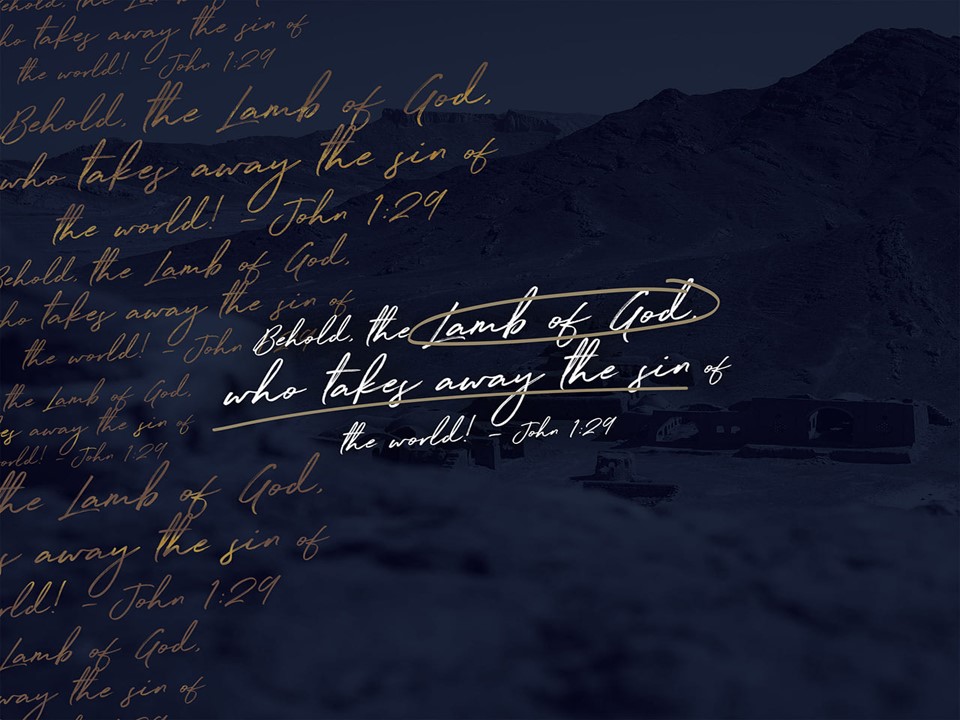 ehold, the Lamb of God,
ho takes away the sin of
the world! - John 1:29
Behold, the Lamb of God,
who takes away the sin of
the world! - John 1:29
Behold, the Lamb of God,
ho takes away the sin of
the world! - John
Behold, the Lamb of God,
who takes away the sin of
the world! - John 1:29
the Lamb of God,
es away the sin of
orld! - John 1:29
the Lamb of God,
s away the sin of
rld! - John 1:29
Lamb of God,
way the sin of
John 1:29